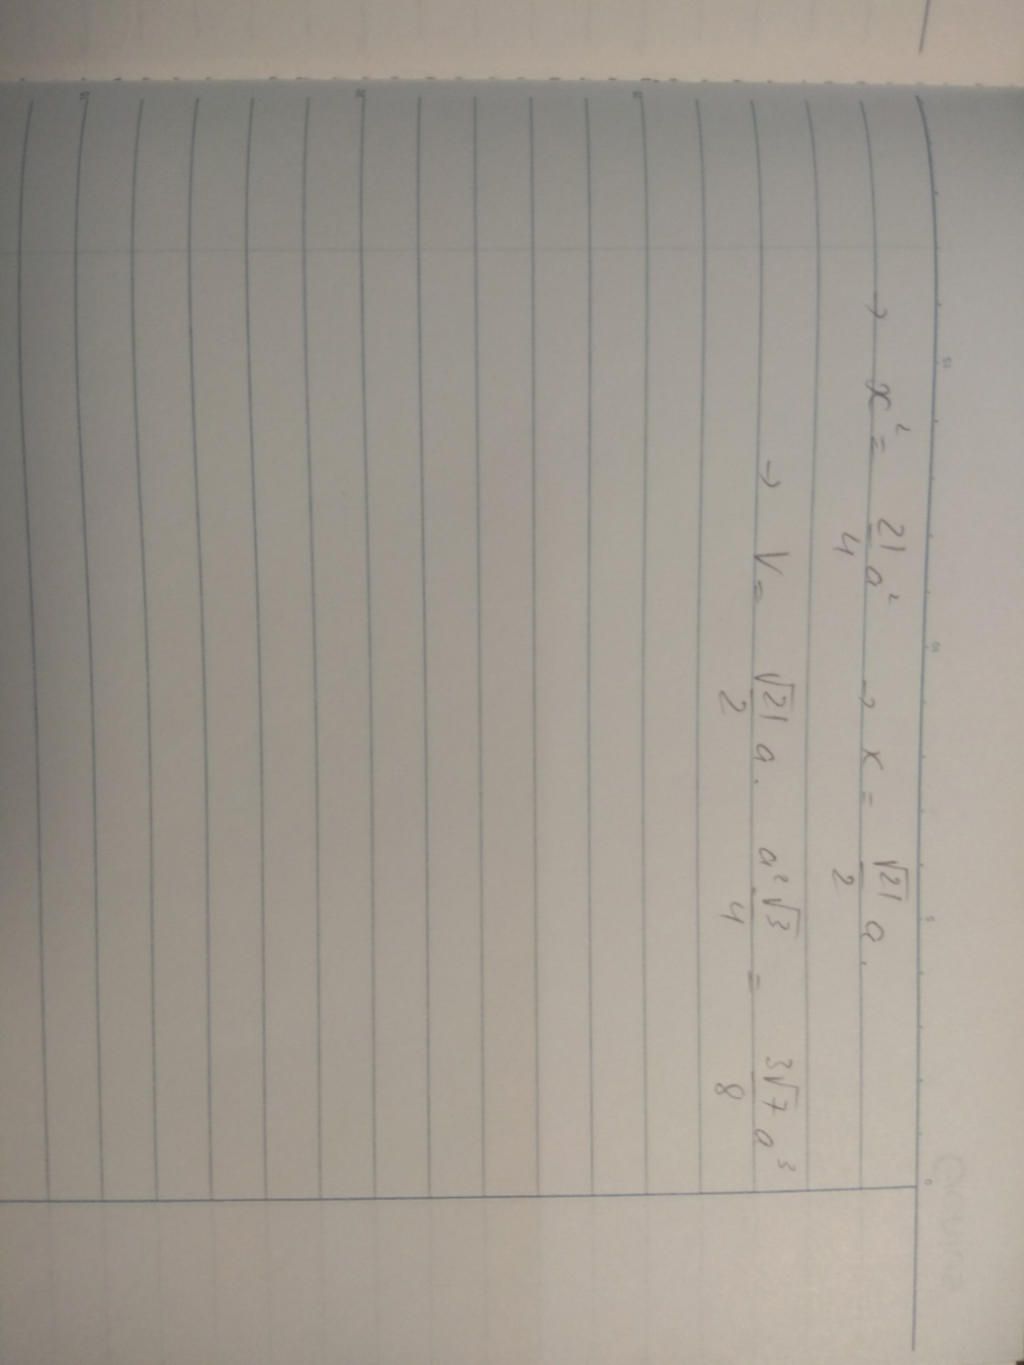 → x² = 21/4 a² → x = √21/2 a.
→ V = √21/2 a. a²√3/4 = 3√7/8 a³